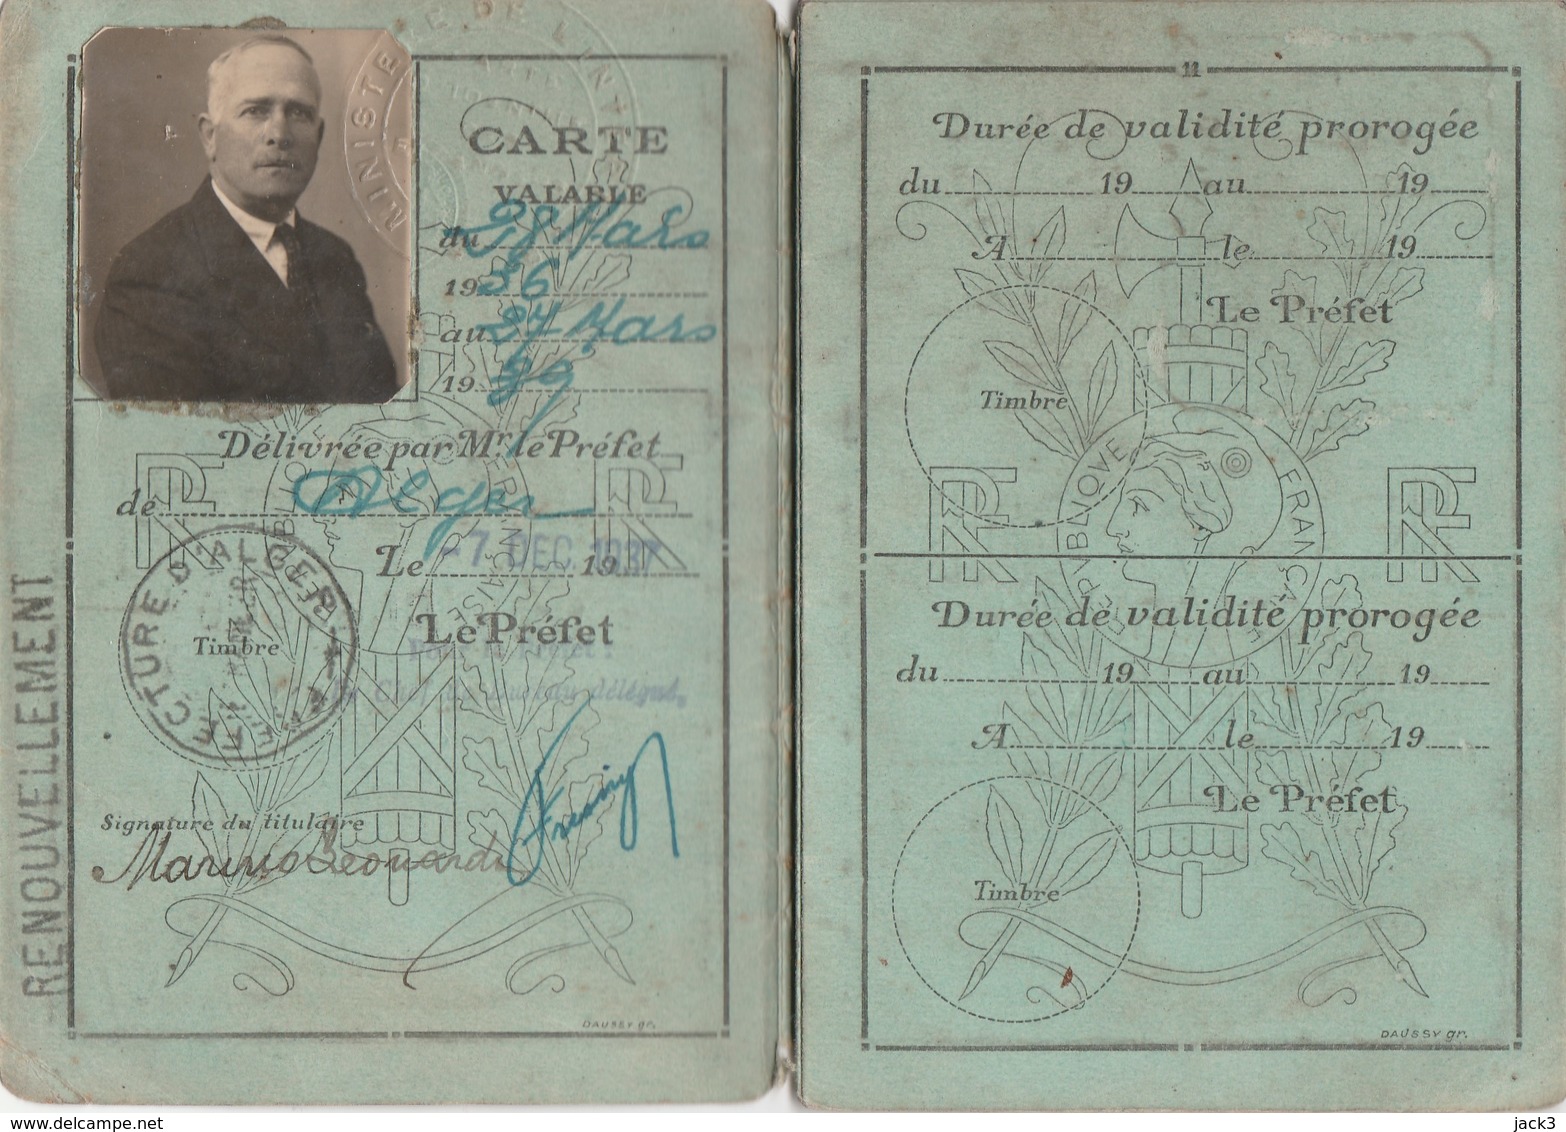 MINISTE E DE L'INT
CARTE
VALABLE
du 28 Mars
1936
au 27 Mars
19 39
Délivrée par Mr. le Préfet
de Alger
Le -7 DEC 1937 19
Le Préfet
délégué,
PRÉFECTURE D'ALGER
Timbre
Signature du titulaire
Marinso Leonardi
RENOUVELLEMENT
RF RF
DAUSSY gr.
11
Durée de validité prorogée
du 19 au 19
A le 19
Le Préfet
Timbre
RÉPVBLIQVE FRANÇAISE
RF RF
Durée de validité prorogée
du 19 au 19
A le 19
Le Préfet
Timbre
DAUSSY gr.
delcampe.net
jack3